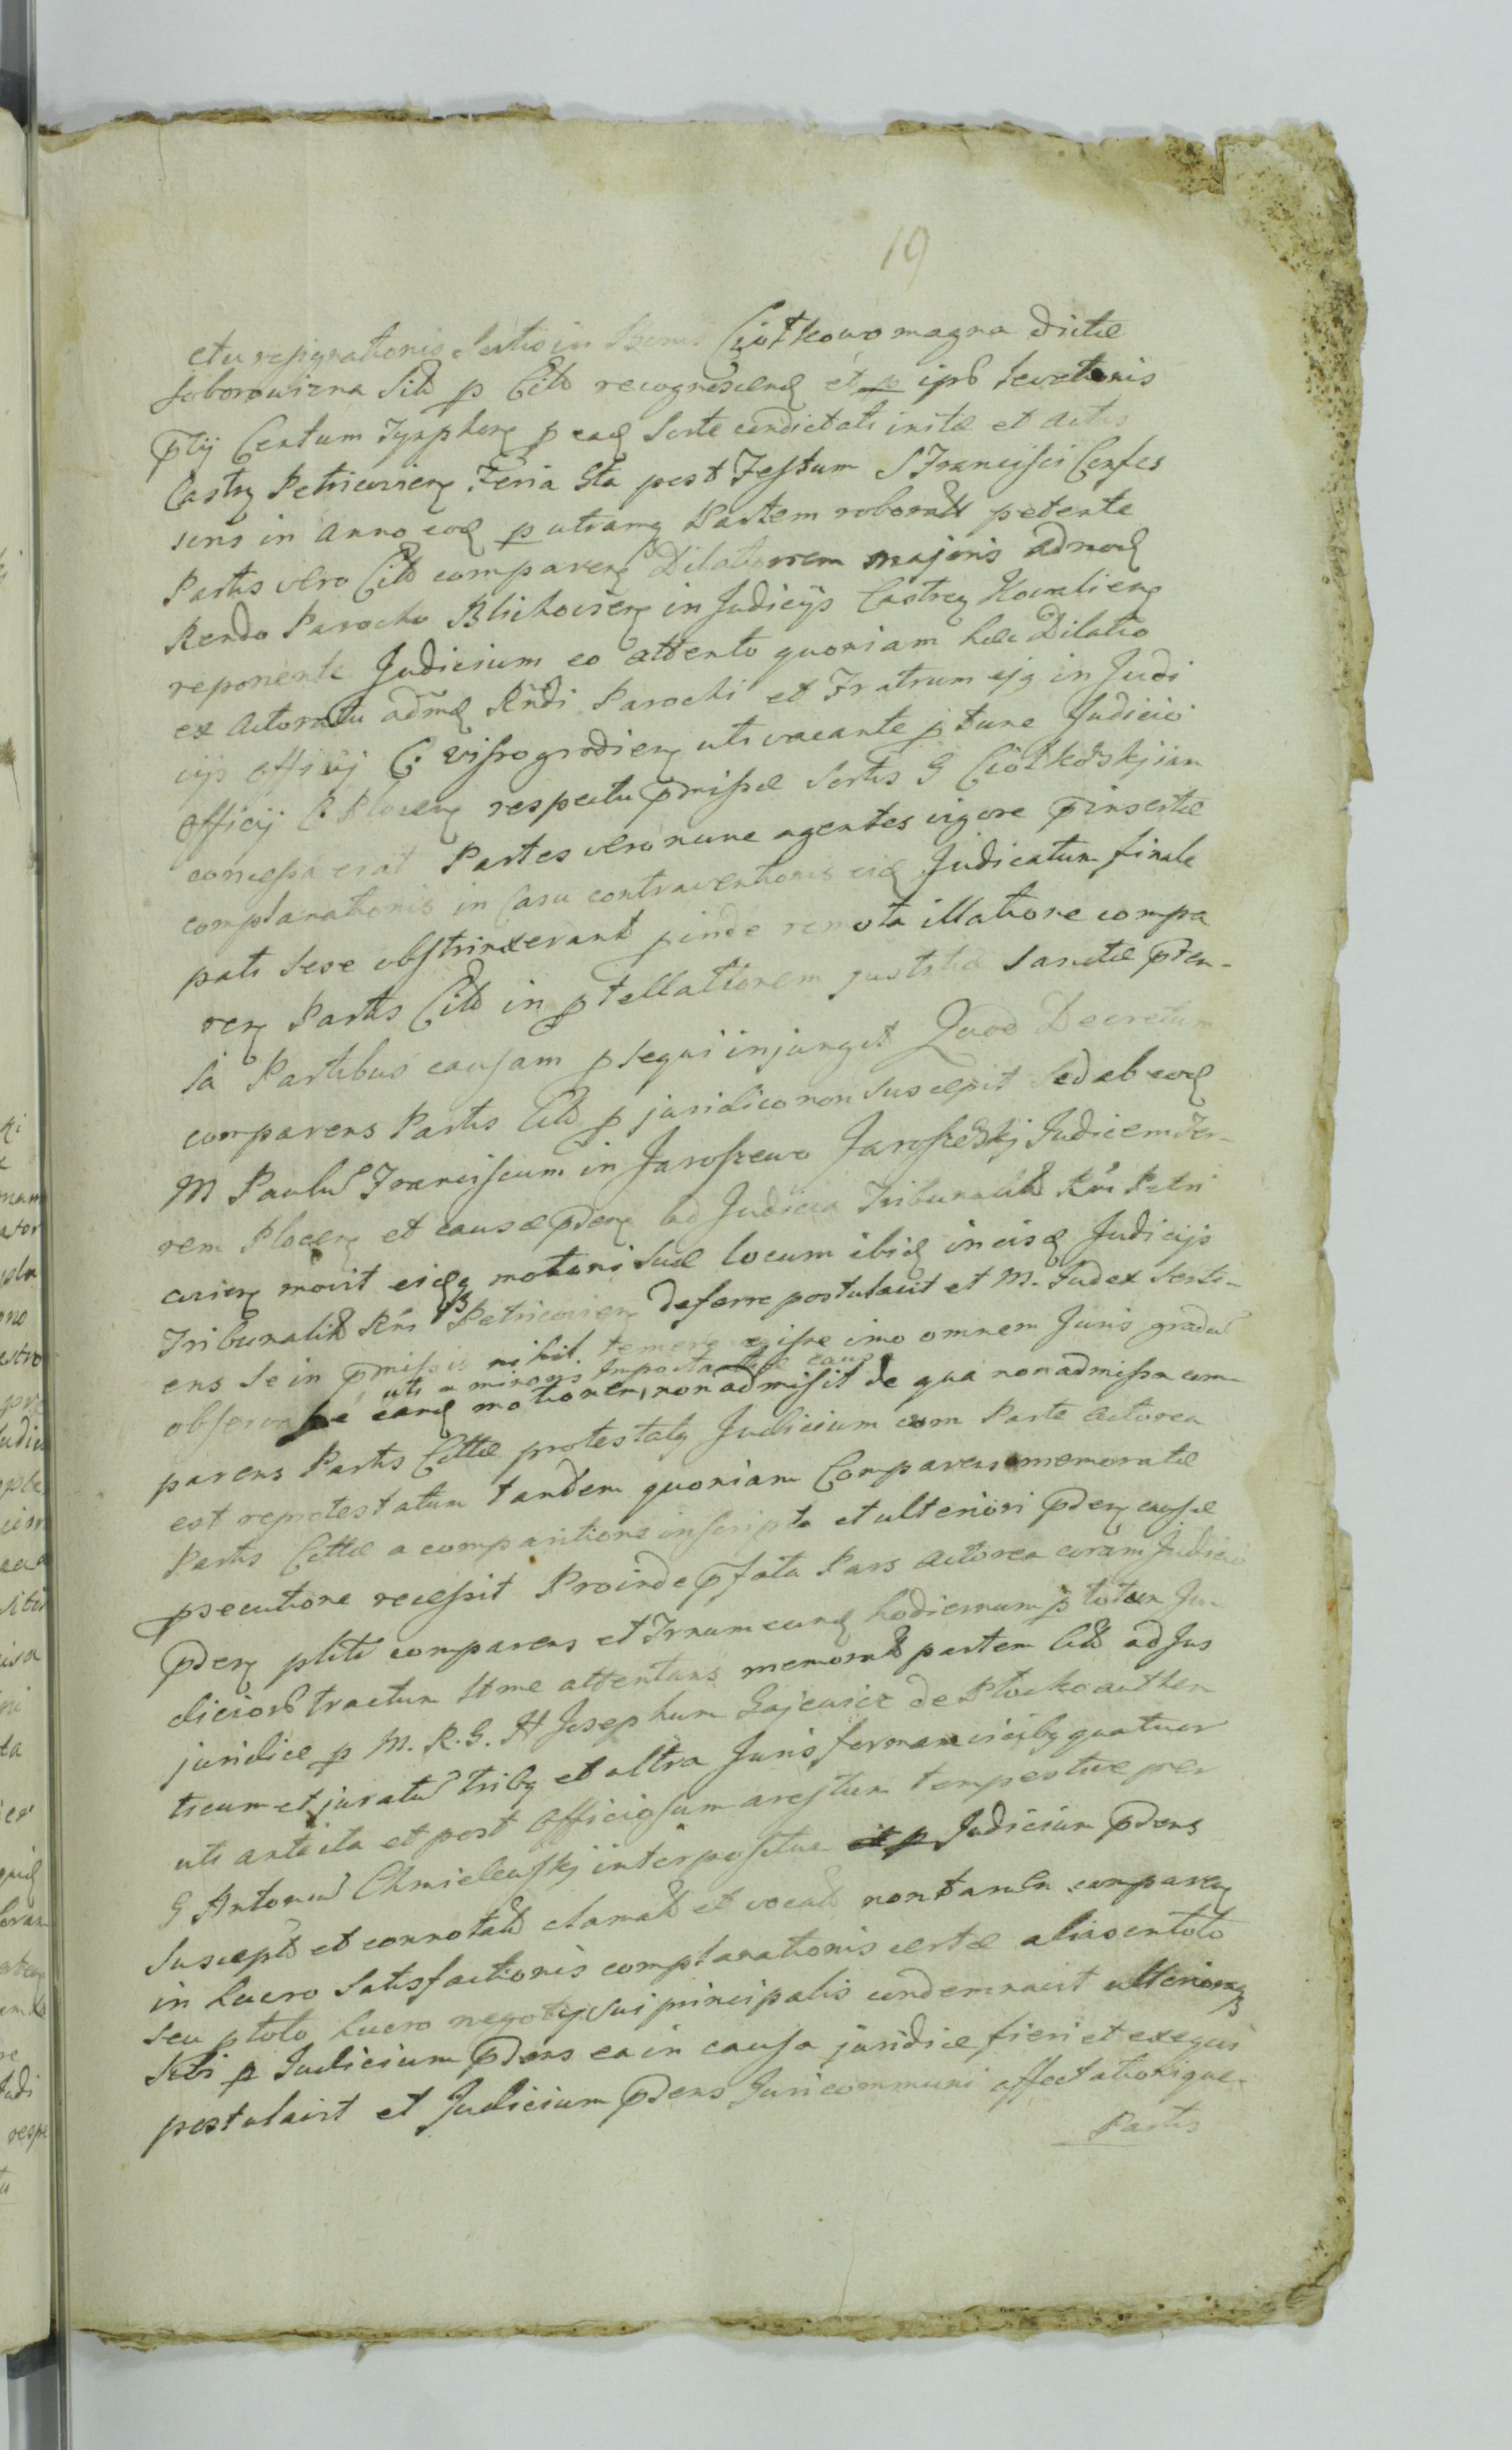 19
ctu resignationis Sortis in Bonis Ciołkowo magna dictæ
Soborowizna Sitæ p Cito recognoscend et p ipso
ptij Centum Tynphorz p ead Sorte condictati initæ et actis
Castrz Petricovienz Feria 5ta post Festum S Francisci Confes
soris in anno eod p utramq Partem roboratæ petente
Partis vero Citæ comparenz Dilationem majoris admod
Rendo Parocho Blichovienz in Judicijs Castrenz Kovalienz
reponente Judicium eo attento quoniam hæc Dilatio
ex Actoratu admd Rndi Parochi et Fratrum ejq in Judi
cijs officij C. Visrogrodienz uti vacante p tunc Judicio
Officij C. Plocenz respectu pmissæ Sortis G Ciołkowskj jam
concessa erat Partes vero nunc agentes vigore pinsertæ
complanationis in Casu contraventionis eid Judicatum finale
pati sese obstrinxerant pinde remota illatione compa
renz Partis Citæ in ptellationem justitiæ Sanctæ pten-
sa Partibus causam psequi injungit Quod Decretum
comparens Partis Citæ p juridico non suscepit Sed ab eod
M Paulū Franciscum in Jaroszewo Jaroszewskj Judicem Ter-
rem Plocenz et causæ pdenz ad Judicia Tribunalis Rni Petri
covienz movit eidq motioni suæ locum ibid in eisd Judicijs
Tribunalis Rni Petricovienz deferre postulavit et M. Judex Senti-
ens Se in pmissis nihil temere egisse imo omnem Juris gradū
uti a minoris Importantiæ causa
observasse eand motionem, non admisit de qua non admissa com-
parens Partis Cittæ protestatq Judicium cum Parte Actorea
est reprotestatum tandem quoniam Comparens memoratæ
Partis Cittæ a comparitione inscripta et ulteriori pdenz causæ
psecutione recessit Proinde pfata Pars Actorea coram Judicio
pdenz pliti comparens et Trnum eund hodiernum p totum Ju-
diciorū tractum ltme attentans memorat partem Citæ ad Jus
juridice p M. R. G. H Josephum Gajewicz de Płocko authen
ticum et juratū tribq et ultra Juris forman vicibq quatuor
uti ante ita et post Officiosum arestum tempestive per
G Antoniū Chmielewskj interpositum Judicium pdens
Suscept et connotat clamat et vocat non tamen comparenz
in lucro Satisfactionis complanationis certæ alias in toto
seu p toto lucro negotij sui principalis condemnavit ulteriorq
Sibi p Judicium pdens ea in causa juridice fieri et exequi
postulavit et Judicium pdens Juri communi affectationique
Partis